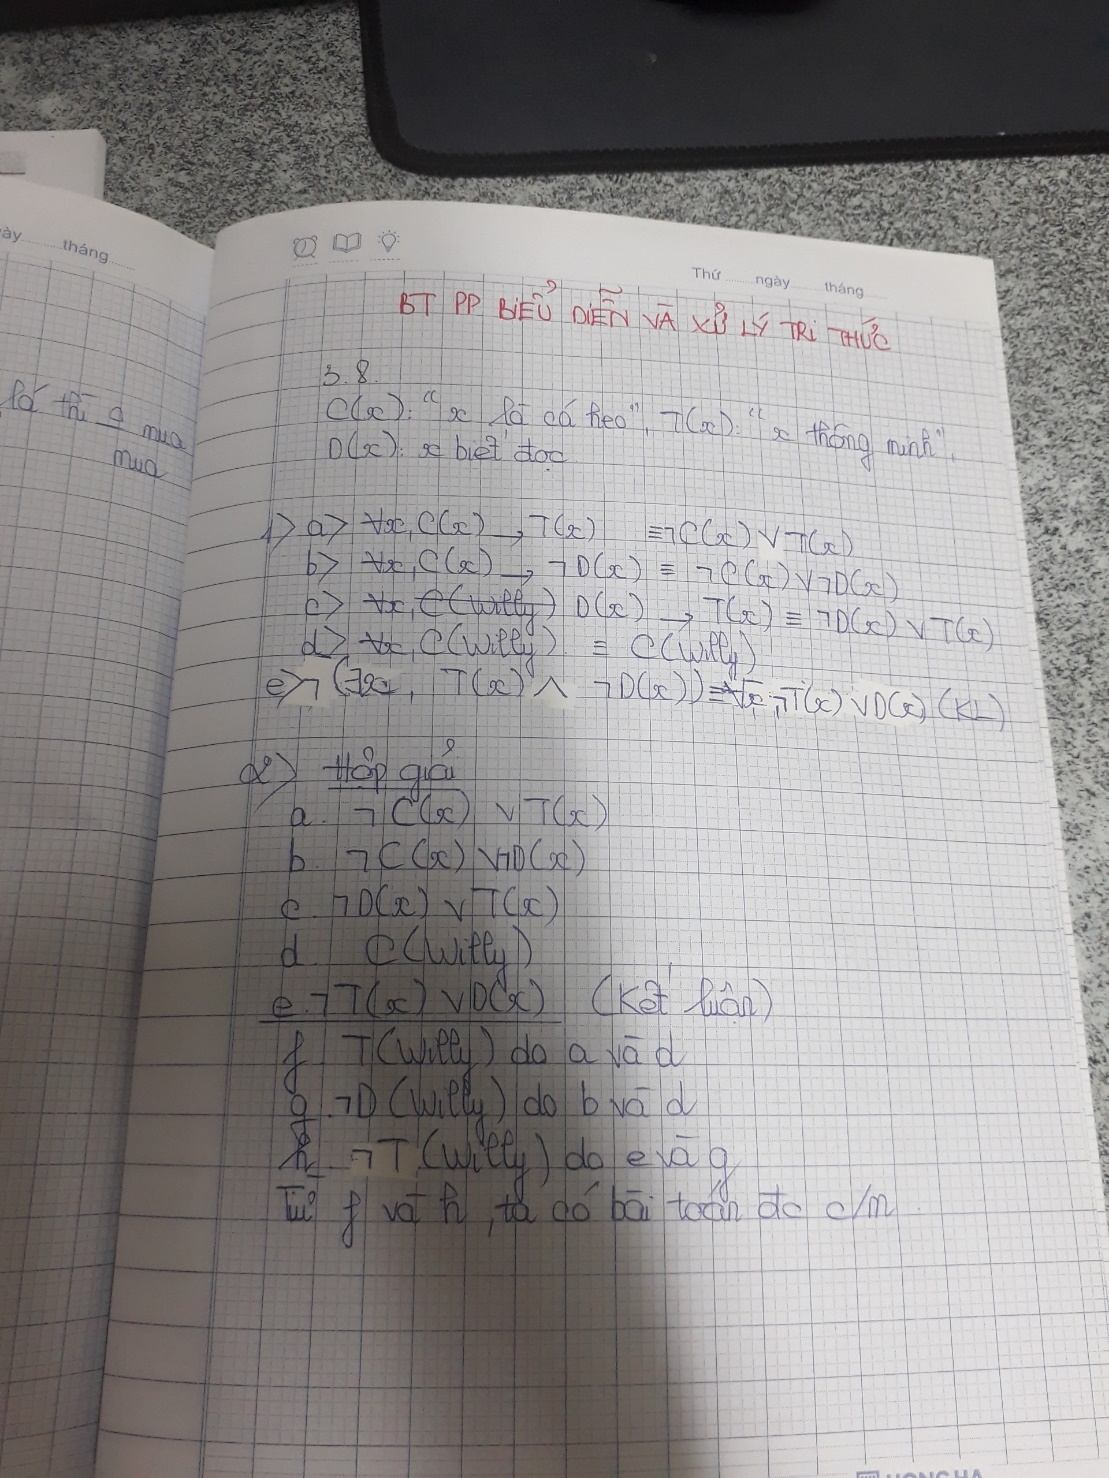 ày tháng
Thứ ngày tháng
BT PP BIỂU DIỄN VÀ XỬ LÝ TRI THỨC
lá thì 9 mua
mua
3.8.
C(x): "x là cá heo", T(x): "x thông minh",
D(x): x biết đọc
1> a> ∀x, C(x) → T(x) ≡ ¬C(x) ∨ T(x)
b> ∀x, C(x) → ¬D(x) ≡ ¬C(x) ∨ ¬D(x)
c> ∀x, C(Willy) D(x) → T(x) ≡ ¬D(x) ∨ T(x)
d> ∀x, C(Willy) ≡ C(Willy)
e> ¬(∃x, T(x) ∧ ¬D(x)) ≡ ∀x, ¬T(x) ∨ D(x) (KL)
2> Hợp giải
a. ¬C(x) ∨ T(x)
b. ¬C(x) ∨ ¬D(x)
c. ¬D(x) ∨ T(x)
d C(Willy)
e. ¬T(x) ∨ D(x) (Kết luận)
f T(Willy) do a và d
g. ¬D(Willy) do b và d
h ¬T(Willy) do e và g
Từ f và h, ta có bài toán đc c/m.
HONG HA